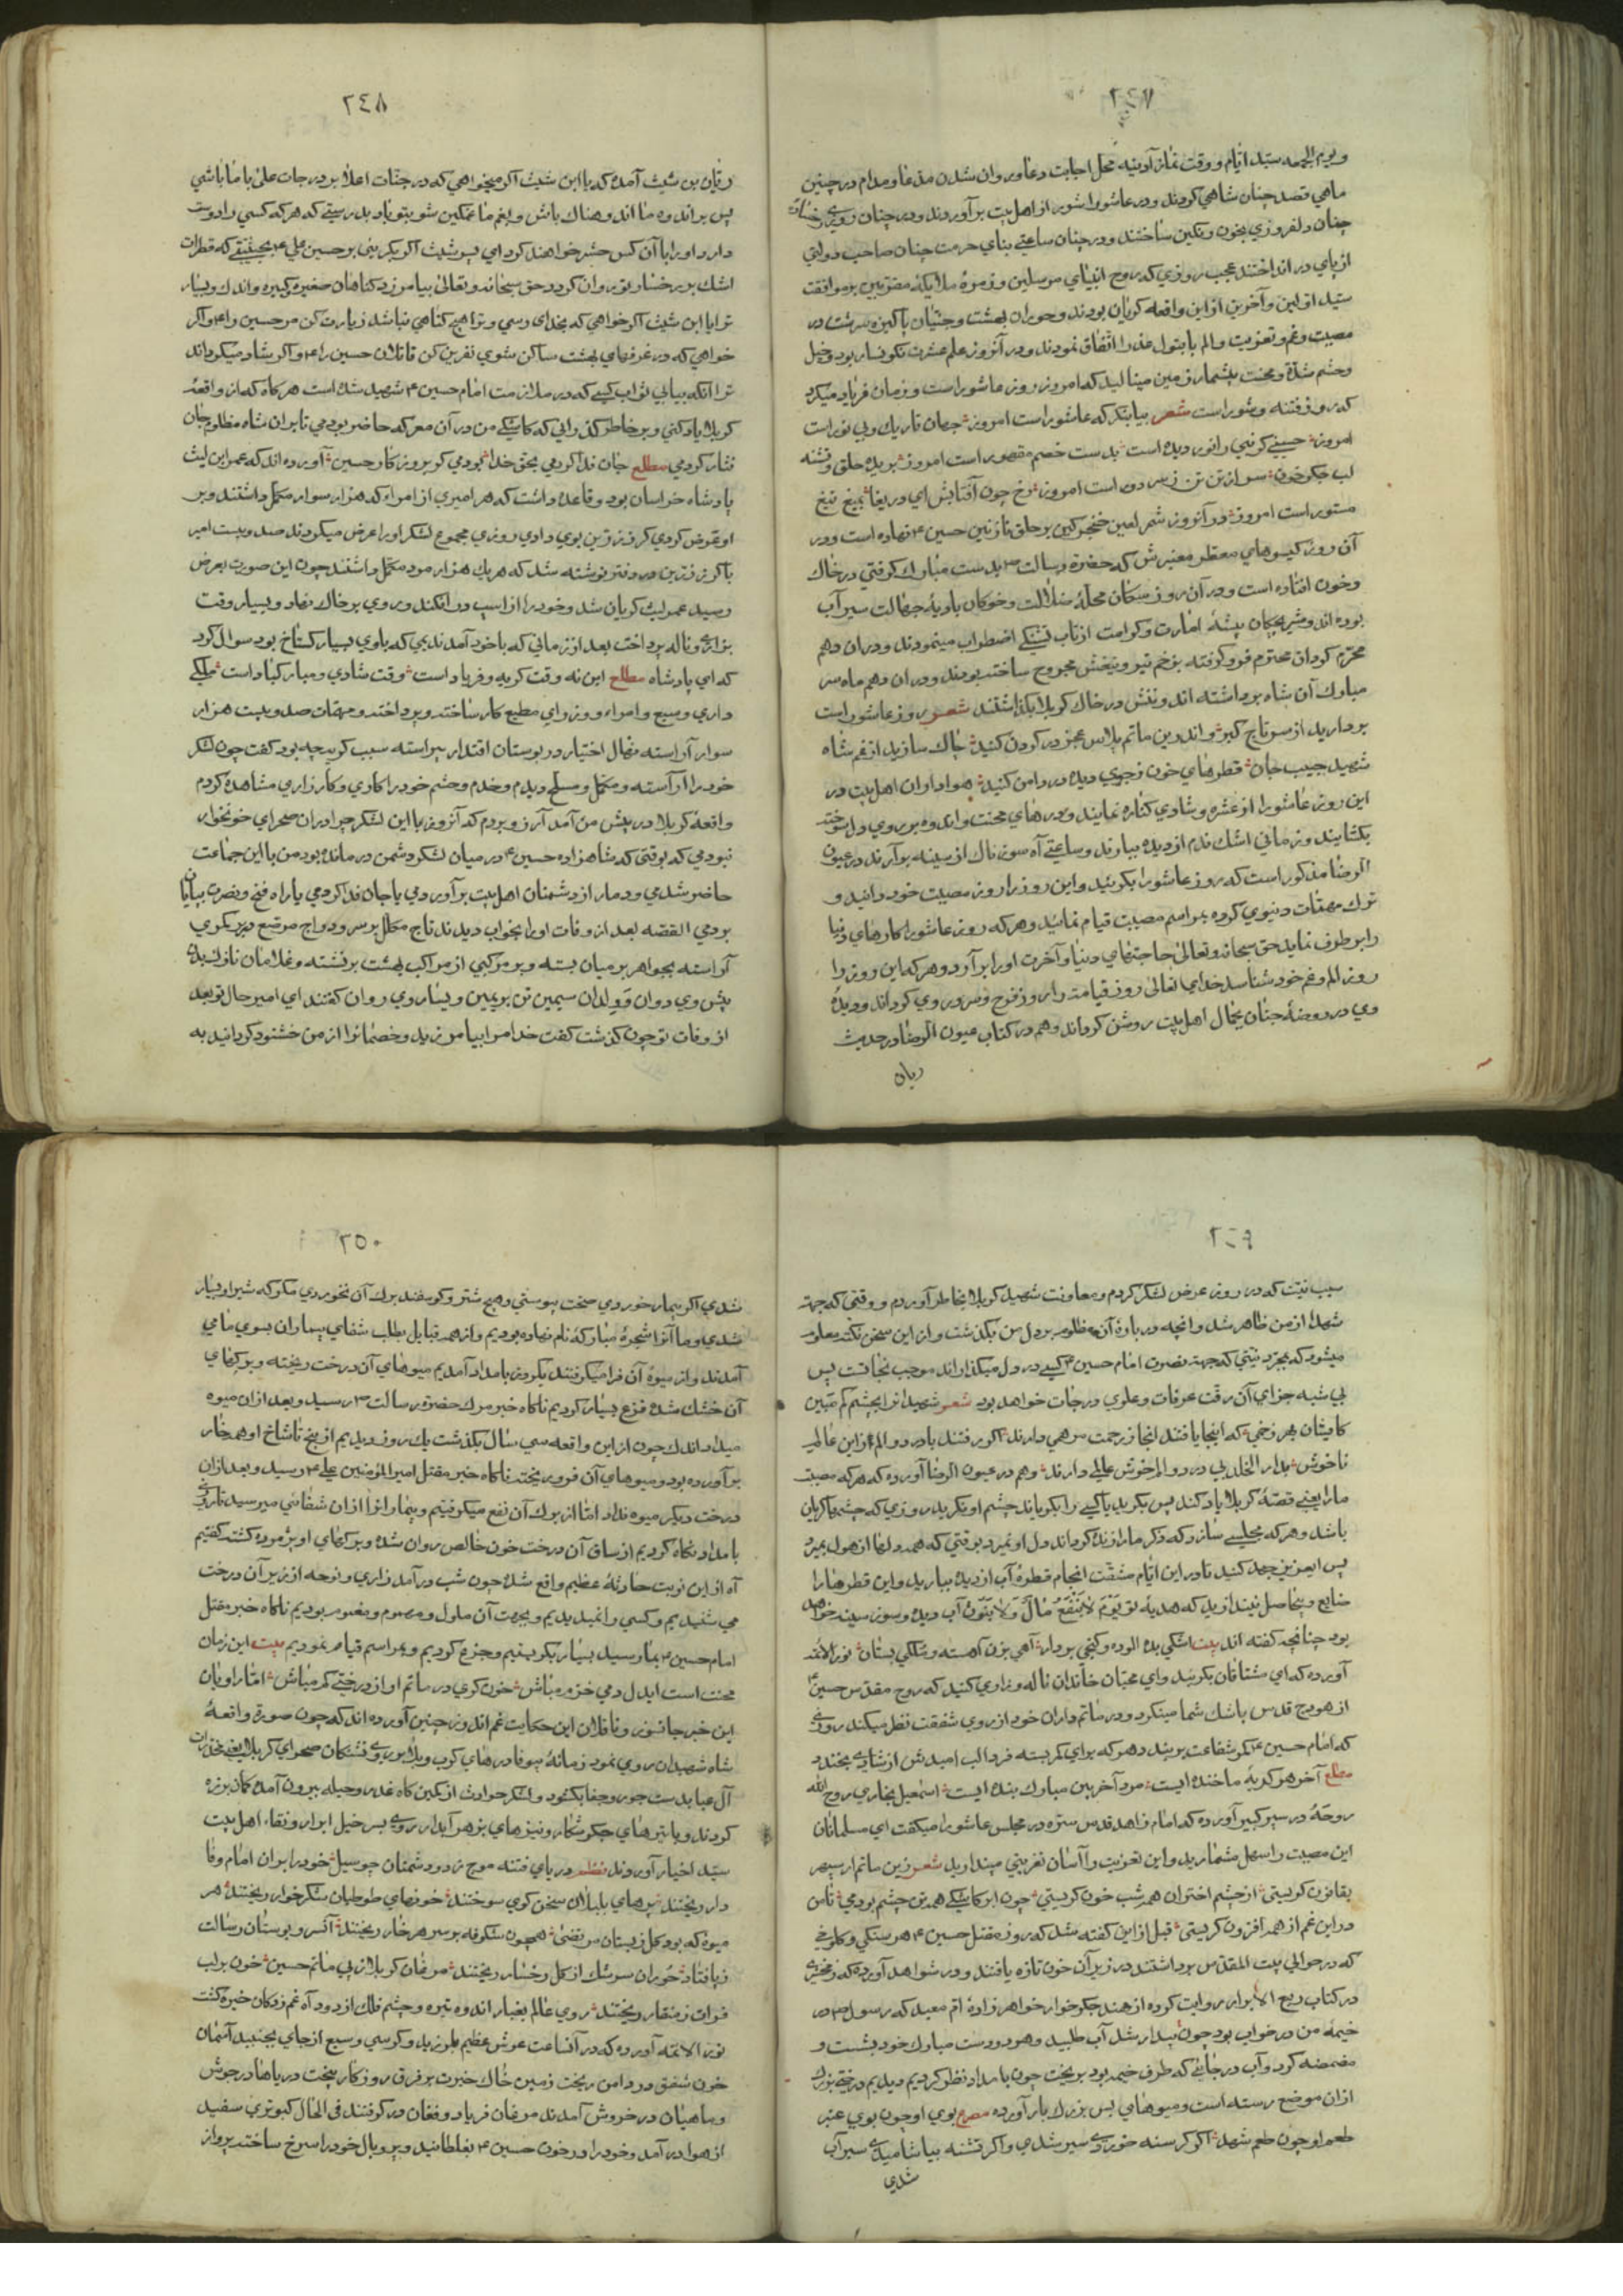 ٢٤٧
ويوم الجمعه سيّد ايّام ووقت نماز آدينه محل اجابت دعا و روان شدن مدعا ومدام در چنين
ماهي قصد چنان شاهي كردند و در عاشورا شور از اهل بيت بر آوردند و در چنان روزي رخسارهٔ
چنان دلفروزي بخون رنكين ساختند و در چنان ساعتي بناي حرمت چنان صاحب دولتي
از پاي در انداختند عجب روزي كه روح انبياي مرسلين و زمرهٔ ملايكهٔ مقربين بر موافقت
سيّد اوّلين و آخرين از اين واقعه كريان بودند و حوران بهشت و جنّيان پاكيزه سرشت در
مصيبت و غم و تعزيت و الم با بتول عذرا اتفاق نمودند و در آنروز علم عشرت نكونسار بود و خيل
و حشم شدّة و محنت بيشمار زمين ميناليد كه امروز روز عاشوراست و زمان فرياد ميكرد
كه روز فتنه و شوراست شعر بيا بنكر كه عاشوراست امروز جهان تاريك و بي نوراست
امروز حسيني كو نبي را نور ديده است بدست خصم مقهور است امروز بريده حلق و تشنه
لب جكر خون سر از تن تن ز سر دور است امروز رخ چون آفتابش اي دريغا بميغ تيغ
مستور است امروز در آنروز شمر لعين خنجر كين بر حلق نازنين حسين ع نهاده است و در
آن روز كيسوهاي معطر معنبرش كه حضرة رسالت ص بدست مبارك كرفتي در خاك
و خون افتاده است و در آن روز سكان محلهٔ ضلالت و خوكان باديهٔ جهالت سيرآب
بوده اند و شير بچكان بيشهٔ امارت و كرامت از تاب تشنكي اضطراب مينمودند و در ان دهم
محرّم كودكان محترم فرو كوفته بزخم تير و تيغش مجروح ساخته بودند و در ان دهم ماه سر
مبارك آن شاه برداشته اند و تنش در خاك كربلا بكذاشتند شعر روز عاشوراست
برداريد از سر تاج كبر و اندرين ماتم پلاس عجز در كردن كنيد چاك سازيد از غم شاه
شهيد جيب جان قطرهاي خون ز جوي ديده در دامن كنيد هواداران اهل بيت در
اين روز عاشورا از عشره و شادي كناره نمايند و درهاي محنت و اندوه بر روي دل سوخته
بكشايند و زماني اشك ندم از ديده ببارند و ساعتي آه سوزناك از سينه برآرند در عيون
الرضا مذكور است كه روز عاشورا بكريئد و اين روز را روز مصيبت خود دانيد و
ترك مهمّات دنيوي كرده بمراسم مصيبت قيام نمائيد و هر كه روز عاشورا كارهاي دنيا
را بر طرف نمايد حق سبحانه و تعالى حاجتهاي دنيا و آخرت او را بر آرد و هر كه اين روز را
روز الم و غم خود شناسد خداي تعالى روز قيامة را روز فرح و سرور وي كرداند و ديدهٔ
وي در روضهٔ جنان بجمال اهل بيت روشن كرداند و هم در كتاب عيون الرضا در حديث
ريان
٢٤٨
ريّان بن شيث آمده كه يا ابن شيث اكر ميخواهي كه در جنّات اعلا بر درجات على با ما باشي
پس بر اندوه ما اندوهناك باش و بغم ما غمكين شو بتو باد بدرستي كه هر كه كسي را دوست
دارد او را با آن كس حشر خواهند كرد اي پسر شيث اكر بكريئي بر حسين علي ع بحيثيتي كه قطرات
اشك بر رخسار تو روان كردد حق سبحانه و تعالى بيامرزد كناهان صغيره و كبيره و اندك و بسيار
ترا يا ابن شيث اكر خواهي كه بخداى رسي و ترا هيچ كناهي نباشد زيارت كن مر حسين را ع و اكر
خواهي كه در غرفهاي بهشت ساكن شوي نفرين كن قاتلان حسين را ع و اكر شاد ميكرداند
ترا آنكه بيابي ثواب كسي كه در ملازمت امام حسين ع شهيد شده است هر كاه كه ما را واقعهٔ
كربلا ياد كني و بر خاطر كذراني كه كاشكي من در آن معركه حاضر بودمي تا بر ان شاه مظلوم جان
نثار كردمي مطلع جان فدا كردمي بحق خدا بودمي كر بروز كار حسين آورده اند كه عمر ابن ليث
پادشاه خراسان بود و قاعده داشت كه هر اميري از امراء كه هزار سوار مكمّل داشتند و بر
او عرض كردي كرز زرّين بوي دادي روزي مجموع لشكر او را عرض ميكردند صد و بيست امير
با كرز زرّين در دفتر نوشته شد كه هر يك هزار مرد مكمّل داشتند چون اين صورت بعرض
رسيد عمرليث كريان شد و خود را از اسپ در افكند و روي بر خاك نهاد و بسيار وقت
بزاري و ناله پرداخت بعد از زماني كه با خود آمد نديمي كه با وي بسيار كستاخ بود سوال كرد
كه اي پادشاه مطلع اين نه وقت كريه و فرياد است وقت شادي و مباركباد است ملكي
داري وسيع و امراء و وزراي مطيع كار ساخته و پرداخته و مهمّات صد و بيست هزار
سوار آراسته نهال اختيار در بوستان اقتدار پيراسته سبب كريه چه بود كفت چون لشكر
خود را آراسته و مكمّل و مسلّح ديدم و خدم و حشم خود را كاري و كارزاري مشاهده كردم
واقعهٔ كربلا در پيش من آمد آرزو بردم كه آنروز با اين لشكر جرّار در ان صحراي خونخوار
نبودمي كه بوقتي كه شاهزاده حسين ع در ميان لشكر دشمن درمانده بود من با اين جماعت
حاضر شدمي و دمار از دشمنان اهل بيت بر آوردمي يا جان فدا كردمي يا راه فتح و نصرت بپايان
بردمي القصّه بعد از وفات او را بخواب ديدند تاج مكلّل بر سر و دواج مرصّع در بر كمري
آراسته بجواهر بر ميان بسته و بر مركبي از مراكب بهشت بر نشسته و غلامان نازك بدن
پيش وي دوان و ولدان سيمين تن بر يمين و يسار وي روان كفتند اي امير حال تو بعد
از وفات تو چون كذشت كفت خدا مرا بيامرزيد و خصمانرا از من خشنود كردانيد به
٢٤٩
سبب نيّت كه در روز عرض لشكر كردم و معاونت شهيد كربلا بخاطر آوردم و وقتي كه جهة
شهدا از من ظاهر شد و انچه در بارهٔ آن مظلوم بر دل من بكذشت و از اين سخن نكته معلوم
ميشود كه بمجرّد نيّتي كه جهة نصرت امام حسين ع كسي در دل ميكذراند موجب نجاتست پس
بي شبه جزاي آن رفعت غرفات و علوي درجات خواهد بود شعر شهيدانرا بچشم كم مبين
كايشان بهر زخمي كه اينجا يافتند انجا ز رحمت مرهمي دارند اكر رفتند با درد و الم از اين عالم
ناخوش بدار الخلد بي درد و الم خوش عالمي دارند و هم در عيون الرضا آورده كه هر كه مصيبت
مارا يعني قصّهٔ كربلا ياد كند پس بكريد يا كسي را بكرياند چشم او نكريد روزي كه چشمها كريان
باشد و هر كه مجلسي سازد كه ذكر ما را زنده كرداند دل او نميرد بوقتي كه همه دلها از هول بميرد
پس ايعزيز جهد كنيد تا در اين ايّام مشقّت انجام قطرهٔ آب از ديده بباريد و اين قطرهارا
ضايع و بيحاصل نيندازيد كه هديهٔ تو يَوْمَ لَا يَنْفَعُ مَالٌ وَلَا بَنُونْ آب ديده و سوز سينه خواهد
بود چنانچه كفته اند بيت اشكي بده الوده و كنجي بردار آهي بزن اهسته و ملكي بستان نور الائمّه
آورده كه اي مشتاقان بكرييد و اي محبّان خاندان ناله و زاري كنيد كه روح مقدّس حسين ع
از هودج قدس باشك شما مينكرد و در ماتم داران خود از روي شفقت نظر ميكند روزي
كه امام حسين ع كمر شفاعت بربندد هر كه براي كمر بسته فردا لب اميدش از شادي بخندد
مطلع آخر هر كريهٔ ما خنده ايست مرد آخر بين مبارك بنده ايست اسمعيل بخاري روح الله
روحهٔ در سير كبير آورده كه امام زاهد قدس سرّه در مجلس عاشورا ميكفت اي مسلمانان
اين مصيبت را سهل مشماريد و اين تعزيت را آسان تغزيتي مپنداريد شعر زين ماتم ار سپهر
بقانون كريستي از چشم اختران همه شب خون كريستي چون ابر كاشكي همه تن چشم بودمي تا من
در اين غم از همه افزون كريستي قبل از اين كفته شد كه روز مقتل حسين ع هر سنكي و كلوخي
كه در حوالي بيت المقدّس برداشتند در زير آن خون تازه يافتند و در شواهد آورده كه زمخشري
در كتاب ربيع الابرار روايت كرده از هند جكرخوار خواهر زادهٔ امّ معبد كه رسول ص در
خيمهٔ من در خواب بود چون بيدار شد آب طلبيد و هر دو دست مبارك خود بشست و
مضمضه كرد و آب در جائي كه طرف خيمه بود بريخت چون بامداد نظر كرديم ديديم درختي بزرك
ازان موضع رسته است و ميوهاي بس بزرك بار آورده مصرع بوي او چون بوي عنبر
طعم او چون طعم شهد اكر كرسنه خوردي سير شدي و اكر تشنه بياشاميدي سيرآب
شدي
٢٥٠
شدي اكر بيمار خوردي صحت پيوستي و هيچ شتر و كوسفند برك آن نخوردي مكر كه شير او بسيار
شدي و ما آنرا شجرهٔ مباركه نام نهاده بوديم و از همه قبايل بطلب شفاي بيماران بسوي ما مي
آمدند و از ميوهٔ آن فرا ميكرفتند يكروز بامداد آمديم ميوهاي آن درخت ريخته و بركهاي
آن خشك شده فزع بسيار كرديم ناكاه خبر مرك حضرة رسالت ص رسيد و بعد ازان ميوه
ميداد اندك چون از اين واقعه سي سال بكذشت يك روز ديديم از بيخ تا شاخ او همه خار
بر آورده بود و ميوهاي آن فرو ريخته ناكاه خبر مقتل امير المؤمنين علي ع رسيد و بعد ازان
درخت ديكر ميوه نداد امّا از برك آن نفع ميكرفتيم و بيمارانرا ازان شفائي ميرسيد تا روزي
بامداد نكاه كرديم از ساق آن درخت خون خالص روان شده و بركهاي او پژمرده كشته كفتيم
آه از اين نوبت حادثهٔ عظيم واقع شده چون شب در آمد زاري و نوحه از زير آن درخت
مي شنيديم و كسي را نميديديم و بجهت آن ملول و مهموم و مغموم بوديم ناكاه خبر مقتل
امام حسين ع بما رسيد بسيار بكريستيم و جزع كرديم و بمراسم قيام نموديم بيت اين زمان
محنت است ايدل دمي خرّم مباش خون كري در ماتم او از درختي كم مباش امّا راويان
اين خبر جانسوز و ناقلان اين حكايت غم اندوز چنين آورده اند كه چون صورة واقعهٔ
شاه شهيدان روي نمود زمانهٔ بيوفا درهاي كرب و بلا بر روي تشنكان صحراي كربلا يعني مخدّرات
آل عبا بدست جور و جفا بكشود و لشكر حوادث از كمين كاه غدر و حيله بيرون آمده كمان بزه
كردند و با تيرهاي جكر شكار و نيزهاي زهر آبدار روي بسر خيل ابرار و نقباء اهل بيت
سيّد اخيار آوردند نظم درياي فتنه موج زد و دشمنان چو سيل خود را بران امام وفا
دار ريختند پرهاي بلبلان سخن كوي سوختند خونهاي طوطيان شكر خوار ريختند هر
ميوه كه بود كل ز بستان مرتضى همچون شكوفه بر سر هر خار ريختند آن سرو بوستان رسالت
ز پا فتاد حوران سرشك از كل رخسار ريختند مرغان كربلا از پي ماتم حسين خون بر لب
فرات ز منقار ريختند روي عالم بغبار اندوه تيره و چشم فلك از دود آه غم زدكان خيره كشت
نور الائمّه آورده كه در آنساعت عرش عظيم بلرزيد و كرسي وسيع از جاي بجنبيد آسمان
خون شفق در دامن ريخت زمين خاك حيرت بر فرق روزكار بيخت درياها در جوش
و ماهيان در خروش آمدند مرغان فرياد و فغان در كرفتند في الحال كبوتري سفيد
از هوا در آمد و خود را در خون حسين ع بغلطانيد و پر و بال خود را سرخ ساخته پرواز